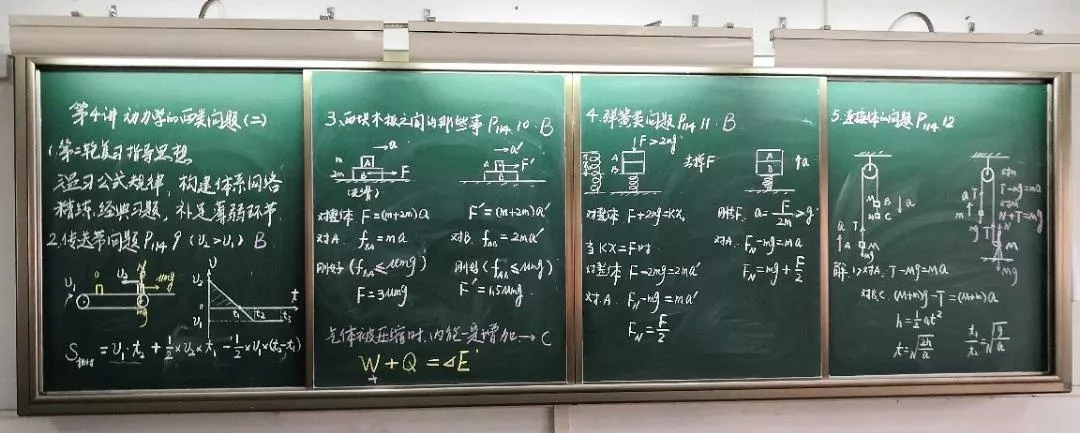 第4讲 动力学的两类问题(二)
1.第二轮复习指导思想
温习公式规律，构建体系网络
精练经典习题，补足薄弱环节.
2.传送带问题P₁₁₄ 9 (v₂>v₁) B
v₁
v₂
N
μmg
mg
v
v₂
t
v₁
t₁
t₂
t₃
S相对 = v₁·t₂ + ½×v₂×t₁ - ½×v₁×(t₂-t₁)
3、两块木板之间的那些事P₁₁₄ 10 B
→a
→a'
m
A
2m
B
→F
A
→F'
B
(光滑)
对整体 F=(m+2m)a
F'=(m+2m)a'
对A. fBA=ma
对B. fAB=2ma'
刚好(fBA≤μmg)
刚好(fAB≤μmg)
F=3μmg
F'=1.5μmg
气体被压缩时,内能一定增加→C
W+Q=ΔE
4.弹簧类问题P₁₁₄ 11. B
↓F>2mg
A
B
去掉F
A
B
↑a
对整体 F+2mg=kx.
刚去F. a=F/2m>g.
当kx=F时
对A. FN-mg=ma
对整体 F-2mg=2ma'
FN=mg+F/2
对.A. FN-mg=ma'
FN=F/2
5.连接体的问题P₁₁₄ 12
对m
T-mg=ma
N+T=Mg
a
T
m
mg
Mg
T
A
M
B
C
↓a
解:1>对A. T-Mg=Ma
对B.C. (M+m)g-T=(M+m)a
h=½at²
t=√(2h/a)
t₁/t₂=√(g/a)